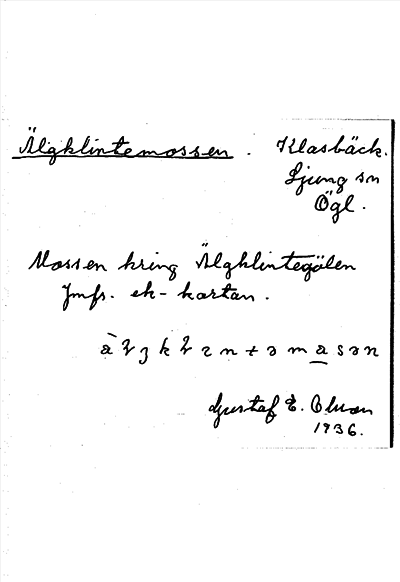 Älgklintemossen. Klasbäck.
Ljung sn
Ögl.
Mossen kring Älgklintegölen
Jmfr. ek-kartan.
Gustaf E. Olsson
1936.